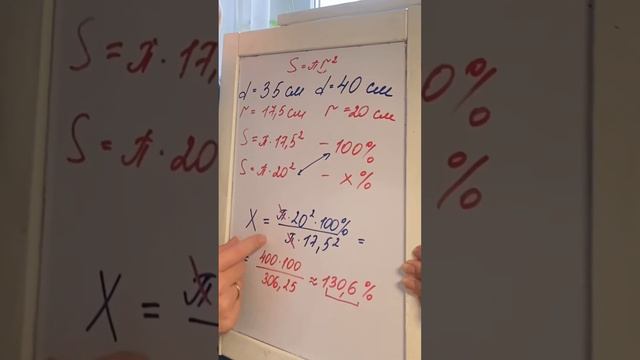 S = πr²
d = 35 см d = 40 см
r = 17,5 см r = 20 см
S = π · 17,5² – 100%
S = π · 20² – x%
X = π · 20² · 100% / π · 17,5² =
= 400 · 100 / 306,25 ≈ 130,6 %